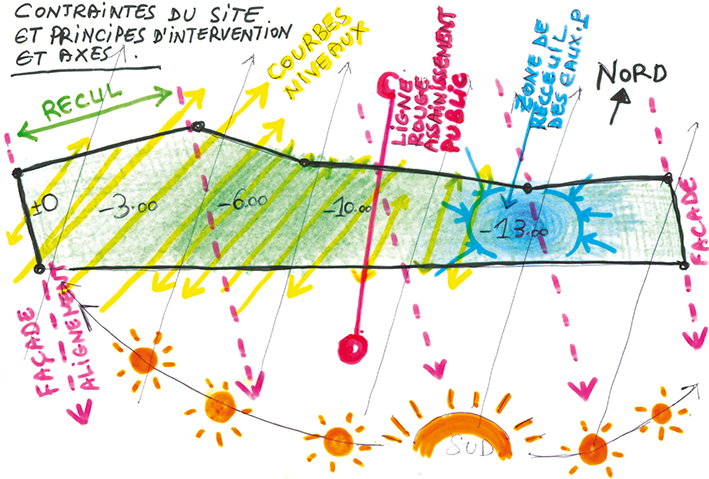 CONTRAINTES DU SITE
ET PRINCIPES D'INTERVENTION
ET AXES.
RECUL
COURBES
NIVEAUX
LIGNE
ROUGE
ASSAINISSEMENT
PUBLIC
ZONE DE
RECCEUIL
DES EAUX.P
NORD
±0
-3.00
-6.00
-10.00
-13.00
FAÇADE
FAÇADE
ALIGNEMENT
SUD